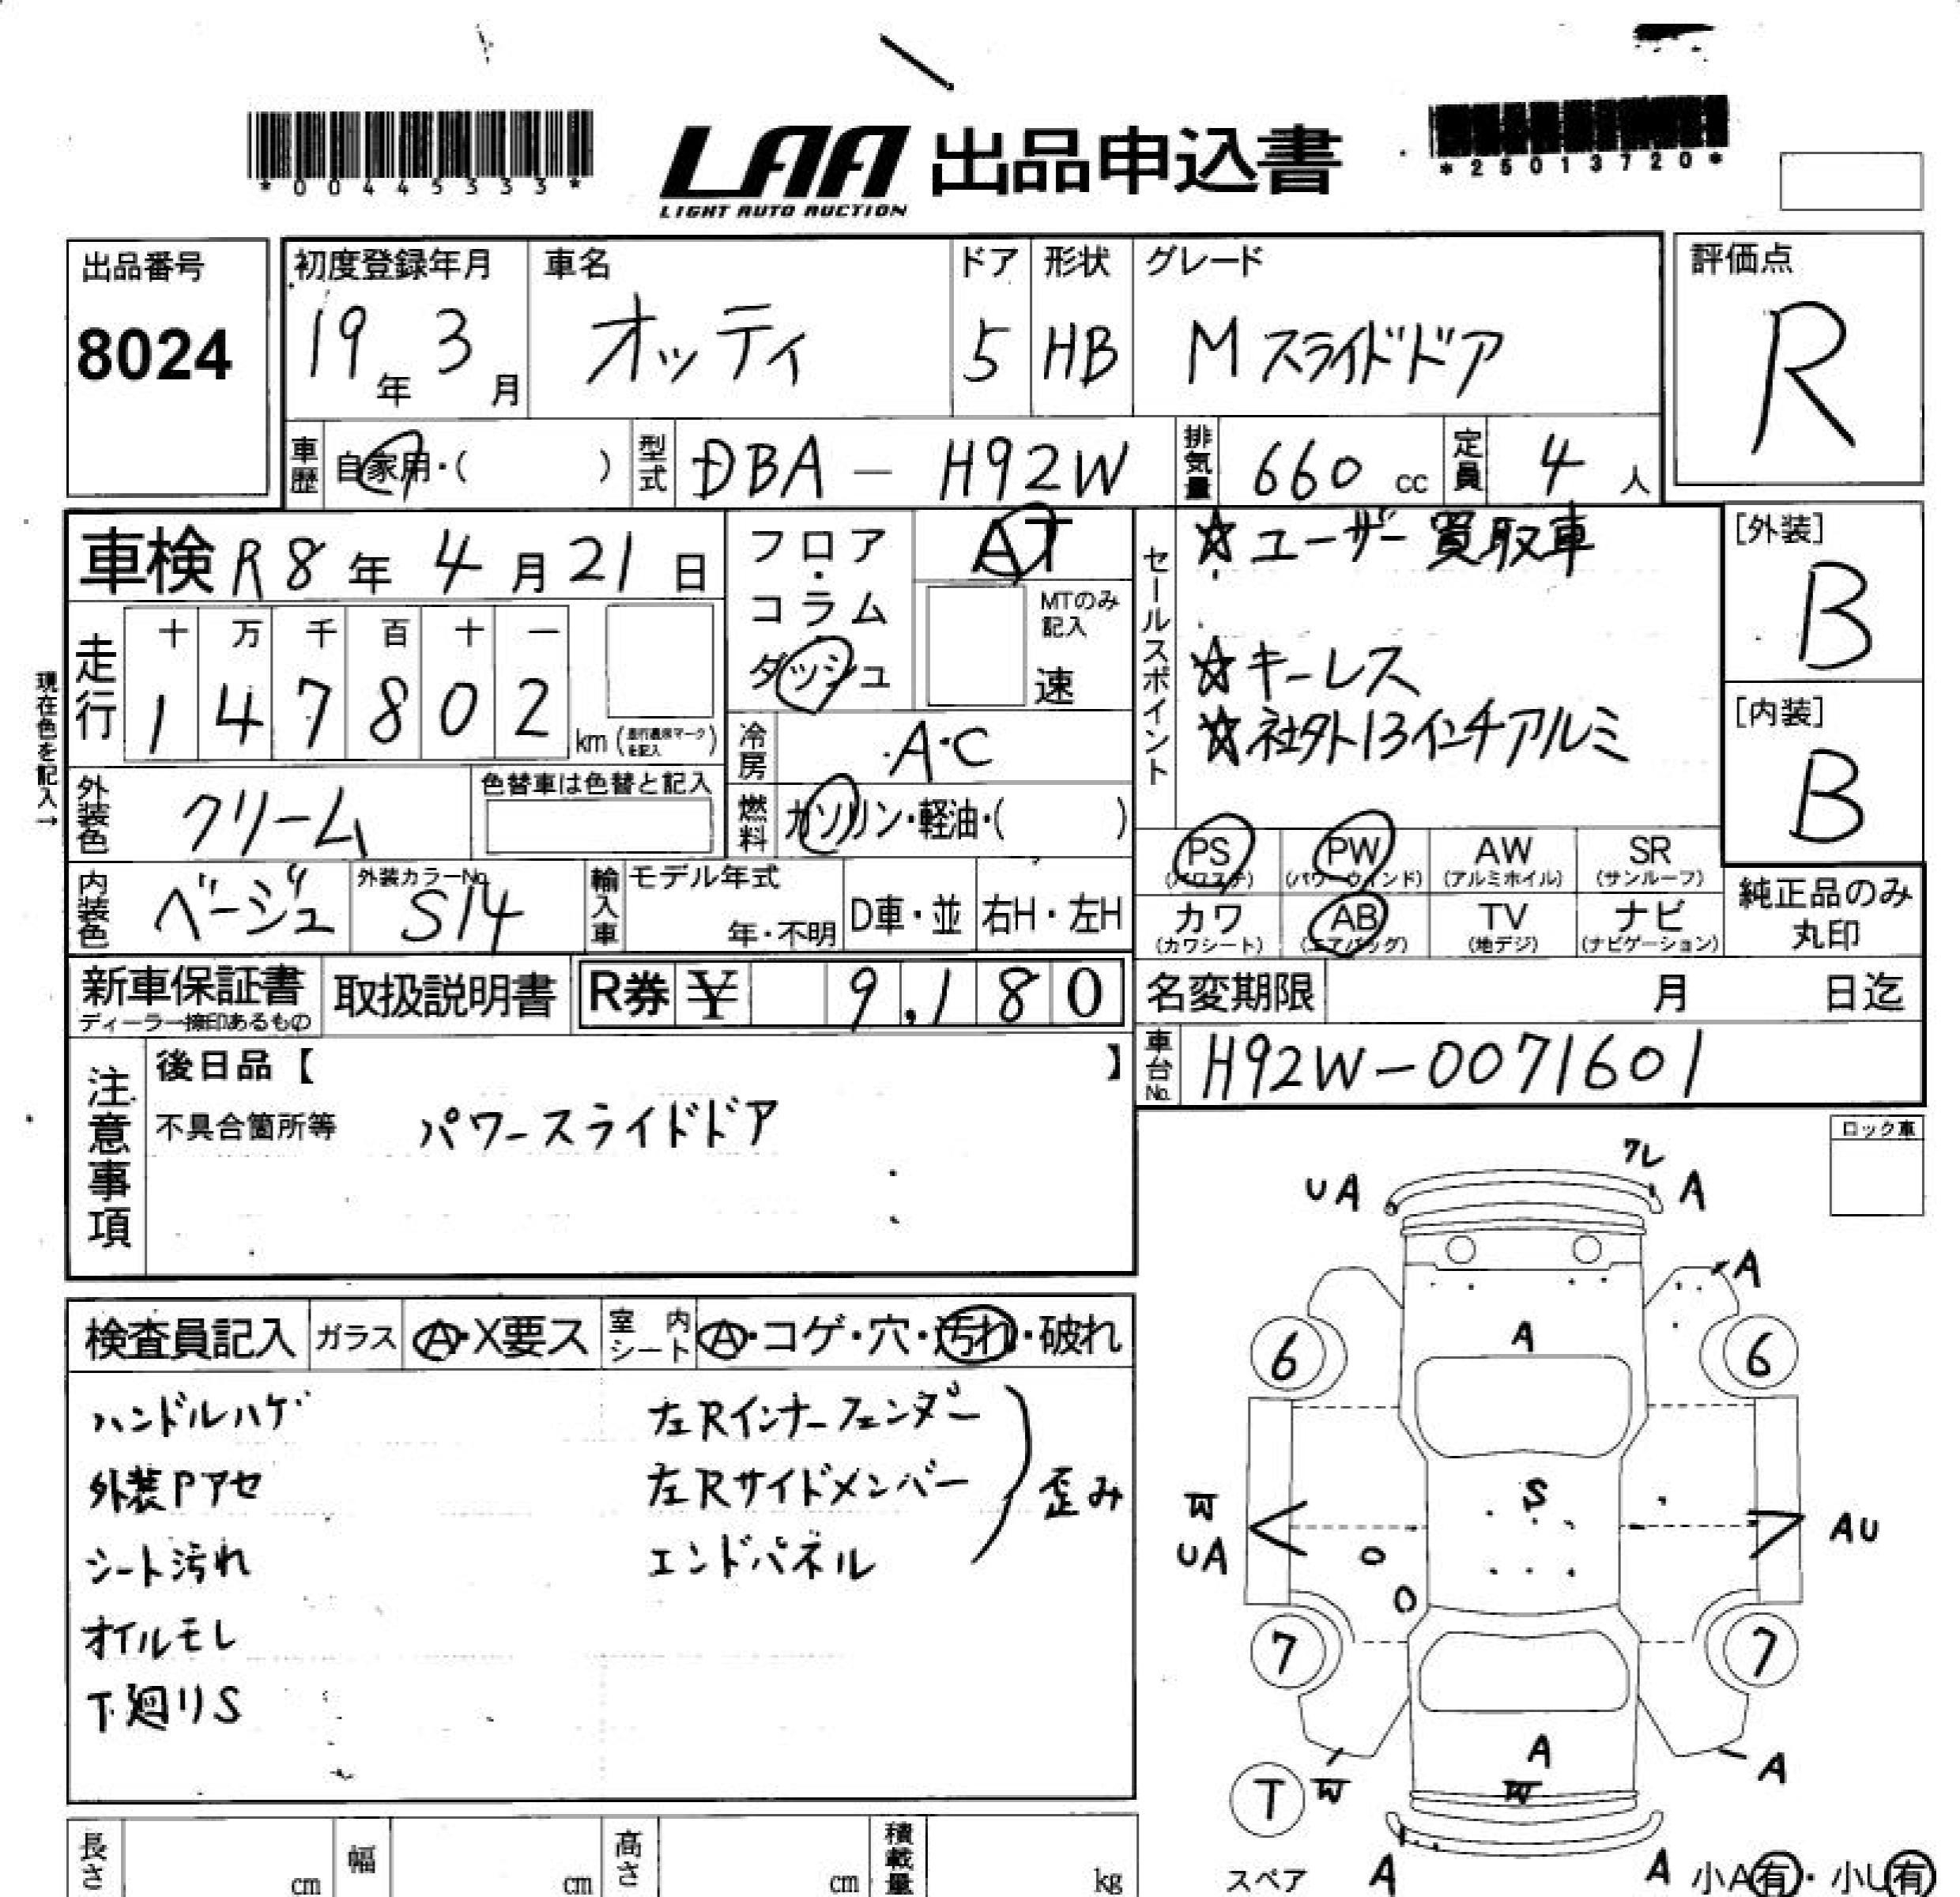 *00445333*
LAA 出品申込書
LIGHT AUTO AUCTION
*25013720*
出品番号
8024
初度登録年月
19年 3月
車名
オッティ
ドア
5
形状
HB
グレード
M スライドドア
評価点
R
車歴
自家用・( )
型式
DBA - H92W
排気量
660 cc
定員
4 人
車検 R8年 4月 21日
フロア・コラム・ダッシュ
AT
MTのみ記入
速
セールスポイント
☆ユーザー買取車
☆キーレス
☆社外13インチアルミ
[外装]
B
[内装]
B
現在色を記入→
走行
十 万 千 百 十 一
1 4 7 8 0 2 km
冷房
A・C
外装色
クリーム
色替車は色替と記入
燃料
ガソリン・軽油・( )
PS (パワステ) PW (パワーウィンド) AW (アルミホイル) SR (サンルーフ)
カワ (カワシート) AB (エアバッグ) TV (地デジ) ナビ (ナビゲーション)
純正品のみ丸印
内装色
ベージュ
外装カラーNo.
S14
輸入車
モデル年式
年・不明
D車・並
右H・左H
新車保証書
ディーラー捺印あるもの
取扱説明書
R券 ¥ 9,180
名変期限 月 日迄
車台No.
H92W-0071601
注意事項
後日品【 】
不具合箇所等 パワースライドドア
ロック車
検査員記入 ガラス A・X要ス 室内シート A・コゲ・穴・汚れ・破れ
ハンドルハゲ
外装Pアセ
シート汚れ
オイルモレ
下廻りS
左Rインナーフェンダー
左Rサイドメンバー
エンドパネル
歪み
UA
ワレ
A
A
A
6
6
S
W
UA
AU
7
7
A
W
A
T
W
スペア
A
A
小A有・小U有
長さ cm
幅 cm
高さ cm
積載量 kg